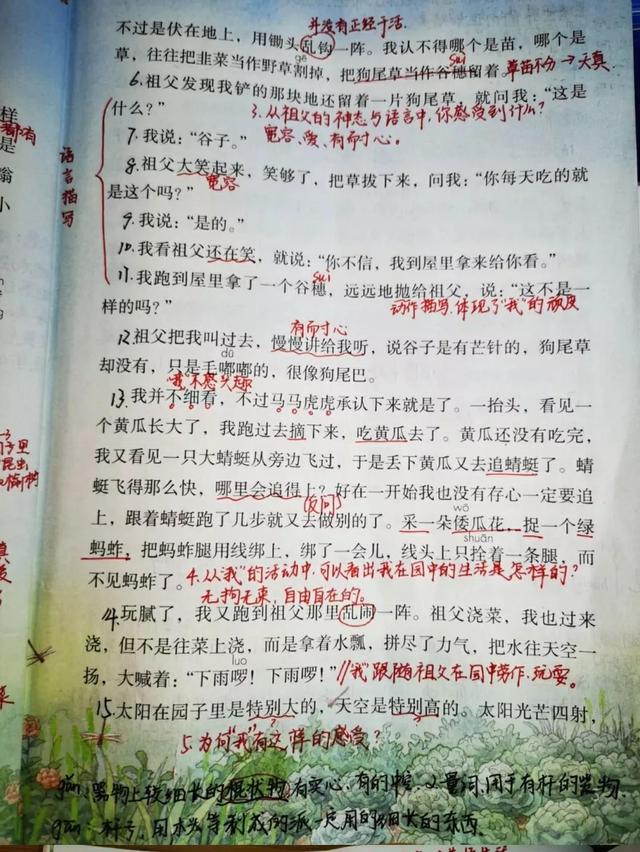 并没有正经干活.
不过是伏在地上，用锄头乱钩一阵。我认不得哪个是苗，哪个是
gē
suì
草，往往把韭菜当作野草割掉，把狗尾草当作谷穗留着。草苗不分→天真
6.祖父发现我铲的那块地还留着一片狗尾草，就问我：“这是
什么？” 3.从祖父的神态与语言中，你感受到什么？
7.我说：“谷子。” 宽容、爱、有耐心。
8.祖父大笑起来，笑够了，把草拔下来，问我：“你每天吃的就
宽容
是这个吗？”
语言描写
9.我说：“是的。”
10.我看祖父还在笑，就说：“你不信，我到屋里拿来给你看。”
suì
11.我跑到屋里拿了一个谷穗，远远地抛给祖父，说：“这不是一
样的吗？” 动作描写，体现了“我”的顽皮
有耐心
12.祖父把我叫过去，慢慢讲给我听，说谷子是有芒针的，狗尾草
dū
却没有，只是毛嘟嘟的，很像狗尾巴。
“我”不感兴趣
13.我并不细看，不过马马虎虎承认下来就是了。一抬头，看见一
个黄瓜长大了，我跑过去摘下来，吃黄瓜去了。黄瓜还没有吃完，
我又看见一只大蜻蜓从旁边飞过，于是丢下黄瓜又去追蜻蜓了。蜻
蜓飞得那么快，哪里会追得上？好在一开始我也没有存心一定要追
(反问)
wō
上，跟着蜻蜓跑了几步就又去做别的了。采一朵倭瓜花，捉一个绿
shuān
蚂蚱，把蚂蚱腿用线绑上，绑了一会儿，线头上只拴着一条腿，而
不见蚂蚱了。4.从“我”的活动中，可以看出我在园中的生活是怎样的？
无拘无束，自由自在的。
14.玩腻了，我又跑到祖父那里乱闹一阵。祖父浇菜，我也过来
浇，但不是往菜上浇，而是拿着水瓢，拼尽了力气，把水往天空一
luo
扬，大喊着：“下雨啰！下雨啰！”//“我”跟随祖父在园中劳作、玩耍。
15.太阳在园子里是特别大的，天空是特别高的。太阳光芒四射，
5.为何“我”有这样的感受？
gǎn：器物上较细长的棍状物，有实心、有的中空，又量词，用于有杆的器物.
gān：杆子，用木头等制成的派一定用的细长的东西.